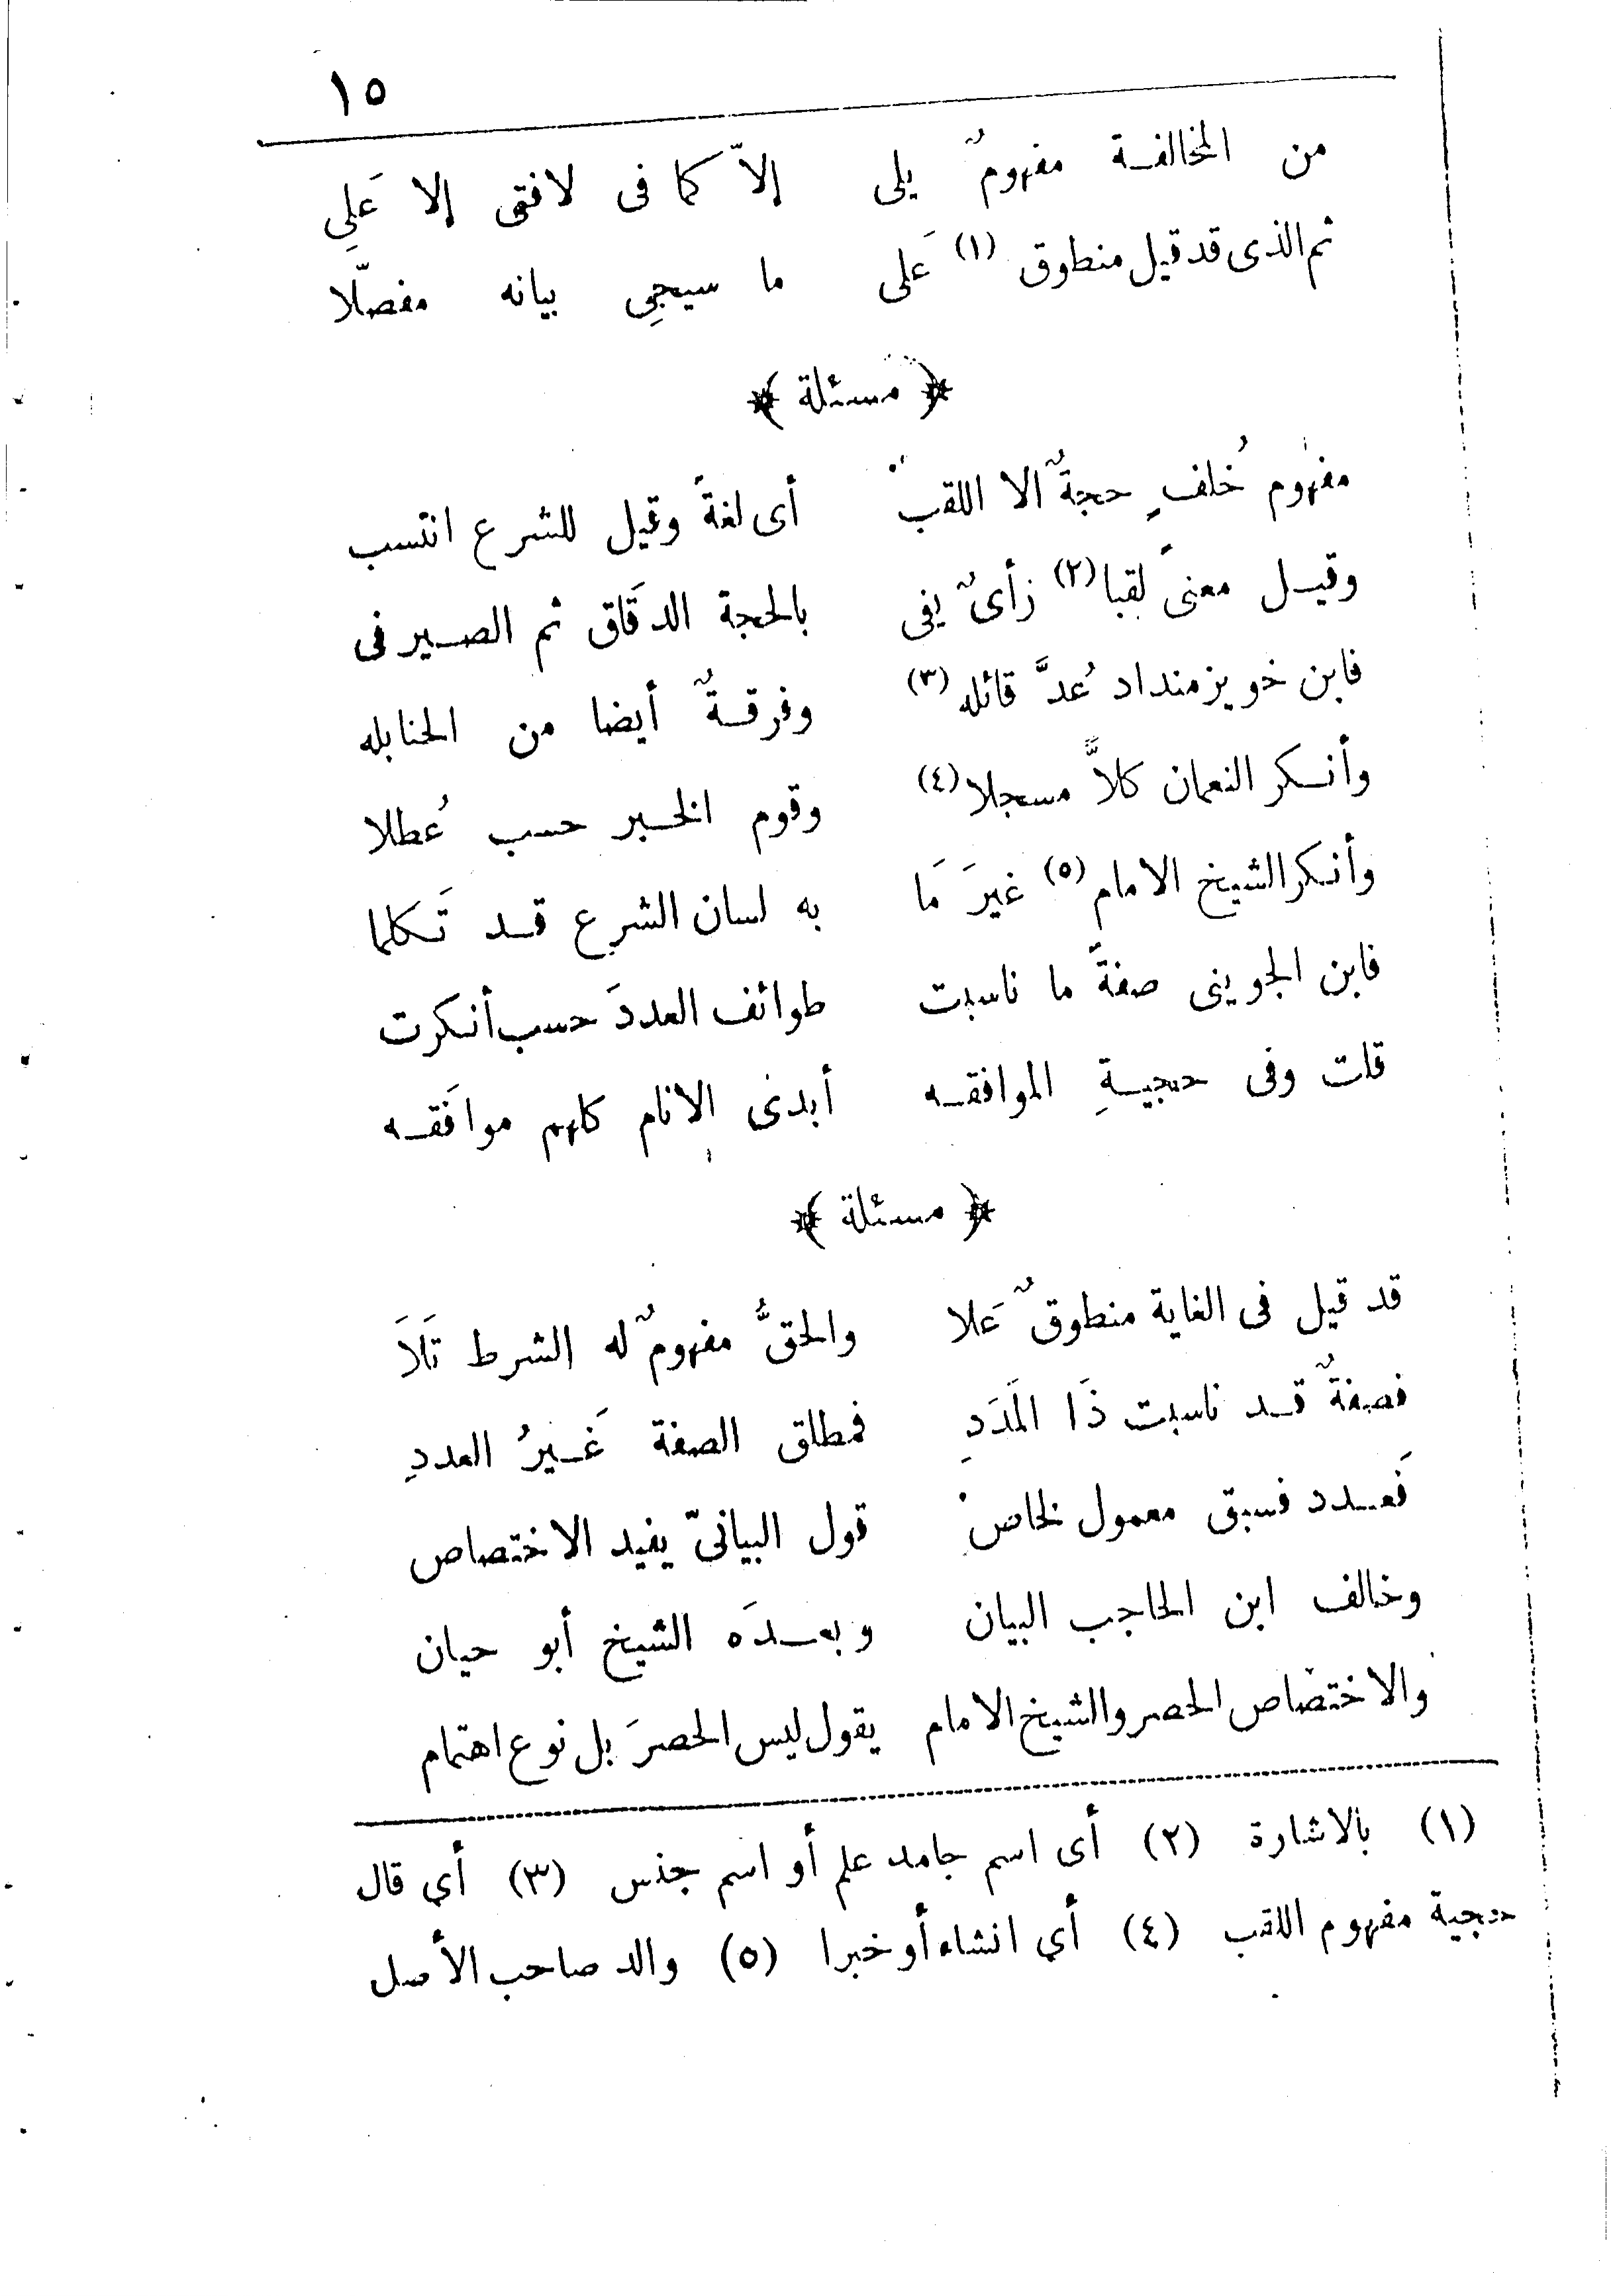 ١٥
من المخالفة مفهومٌ يلى إلاّ كما فى لافتى إلا عَلِي
ثم الذى قد قيل منطوق (١) عَلى ما سيجِى بيانه مفصلّا
﴿ مسئلة ﴾
مفهوم خُلفٍ حجةٌ الا اللقب أى لغةً وقيل للشرع انتسب
وقيل معنىً لقبا (٢) زأىٌ يفى بالحجة الدقَاق ثم الصيرفى
فابن خويزمنداد عُدَّ قائله (٣) وفرقةٌ أيضا من الحنابله
وأنكر النعمان كلاًّ مسجلا (٤) وقوم الخبر حسب عُطلا
وأنكر الشيخ الامام (٥) غيرَ مَا به لسان الشرع قد تَكلما
فابن الجوينى صفةً ما ناسبت طوائف العددَ حسب أنكرت
قلت وفى حجيةِ الموافقه أبدى الانام كلهم موافَقه
﴿ مسئلة ﴾
قد قيل فى الغاية منطوقٌ عَلا والحقُّ مفهومٌ له الشرط تَلاَ
فصفةٌ قد ناسبت ذَا المَدَدِ فمطلق الصفة غَيرُ العددِ
فَعدد فسبق معمول لخاص قول البيانىّ يفيد الاختصاص
وخالف ابن الحاجب البيان وبعدَه الشيخ أبو حيان
والاختصاص الحصر والشيخ الامام يقول ليس الحصرَ بل نوع اهتمام
(١) بالاشارة (٢) أى اسم جامد علم أو اسم جنس (٣) أي قال
حجية مفهوم اللقب (٤) أي انشاء أو خبرا (٥) والد صاحب الأصل